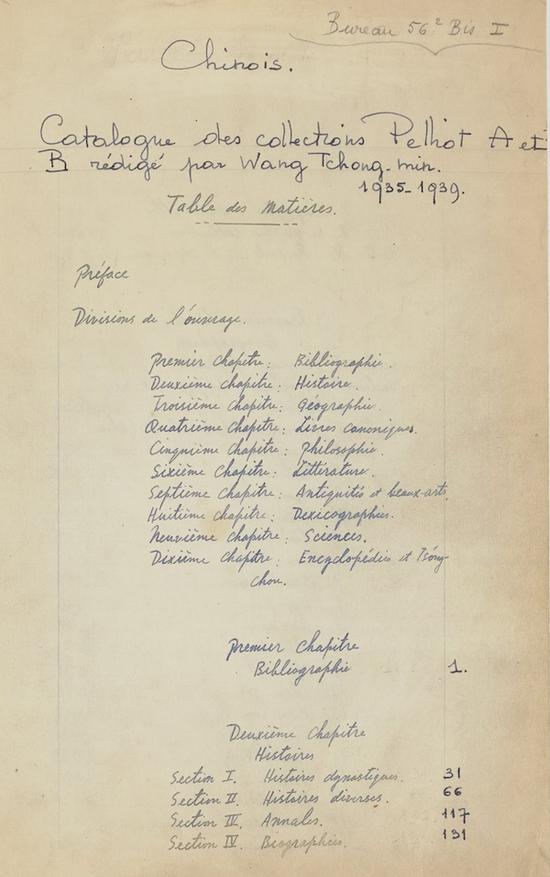 Bureau 56² Bis I
Chinois.
Catalogue des collections Pelliot A et
B rédigé par Wang Tchong-min.
1935-1939.
Table des matières.
Préface
Divisions de l'ouvrage.
Premier chapitre: Bibliographie.
Deuxième chapitre: Histoire.
Troisième chapitre: Géographie.
Quatrième chapitre: Livres canoniques.
Cinquième chapitre: Philosophie.
Sixième chapitre: Littérature.
Septième chapitre: Antiquités et beaux-arts.
Huitième chapitre: Lexicographies.
Neuvième chapitre: Sciences.
Dixième chapitre: Encyclopédies et Ts'ong-
chou.
Premier Chapitre
Bibliographie 1.
Deuxième Chapitre
Histoires
Section I. Histoires dynastiques. 31
Section II. Histoires diverses. 66
Section III. Annales. 117
Section IV. Biographies. 131